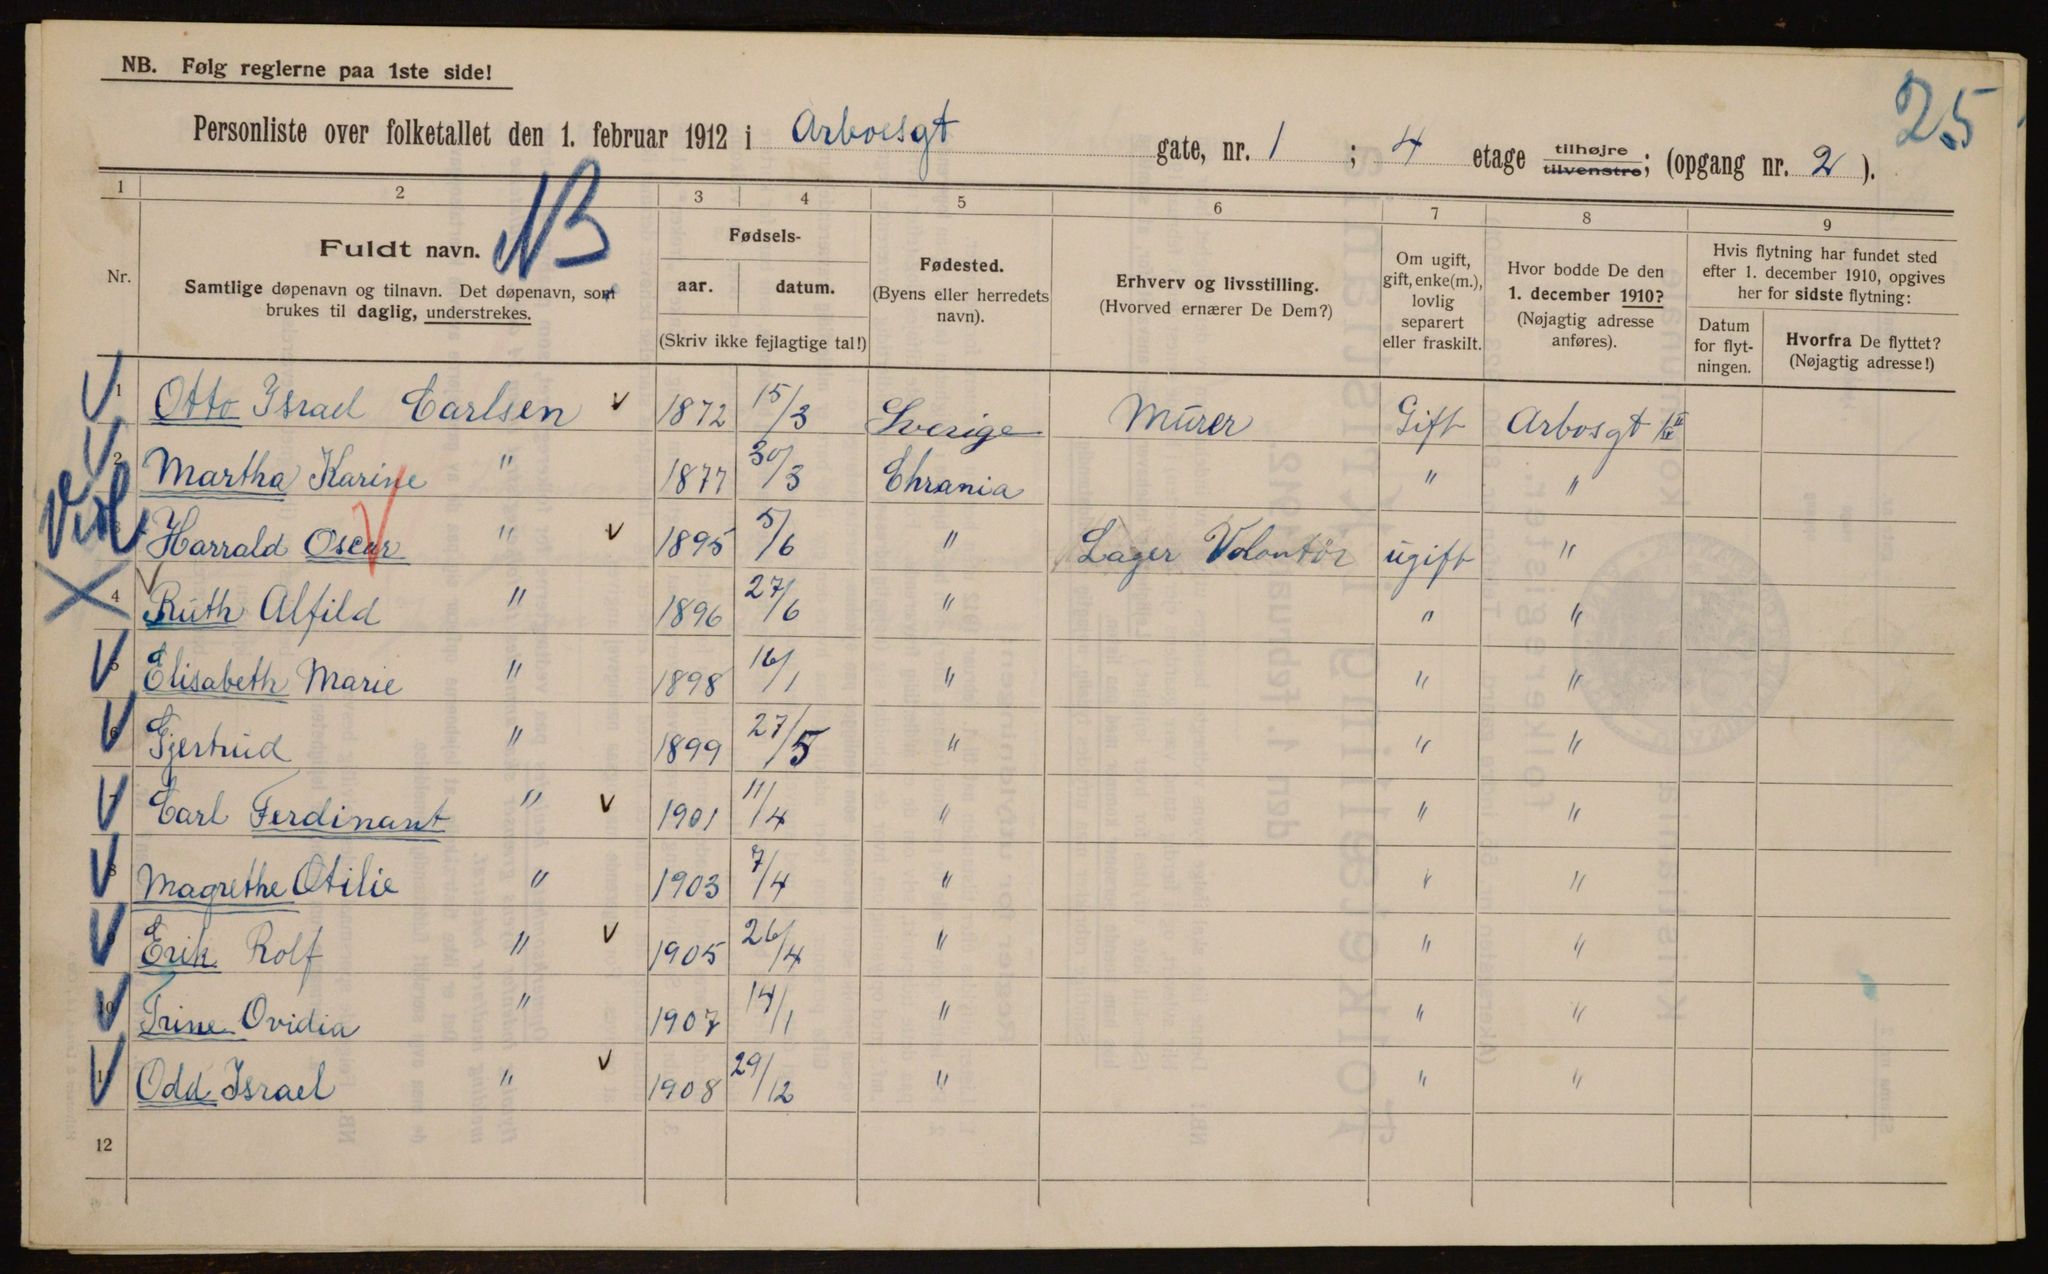 25
NB. Følg reglerne paa 1ste side!
Personliste over folketallet den 1. februar 1912 i Arboesgt gate, nr. 1 ; 4 etage tilhøjre tilvenstre; (opgang nr. 2 ).
1 2 3 4 5 6 7 8 9
NB
Nr.
Fuldt navn.
Samtlige døpenavn og tilnavn. Det døpenavn, som
brukes til daglig, understrekes.
Fødsels-
aar. datum.
(Skriv ikke fejlagtige tal!)
Fødested.
(Byens eller herredets
navn).
Erhverv og livsstilling.
(Hvorved ernærer De Dem?)
Om ugift,
gift, enke(m.),
lovlig
separert
eller fraskilt.
Hvor bodde De den
1. december 1910?
(Nøjagtig adresse
anføres).
Hvis flytning har fundet sted
efter 1. december 1910, opgives
her for sidste flytning:
Datum
for flyt-
ningen.
Hvorfra De flyttet?
(Nøjagtig adresse!)
1 Otto Israel Carlsen 1872 15/3 Sverige Murer Gift Arbosgt
2 Martha Karine " 1877 30/3 Chrania " "
3 Harrald Oscar " 1895 5/6 " Lager Volontör ugift "
4 Ruth Alfild " 1896 27/6 " " "
5 Elisabeth Marie " 1898 16/1 " " "
6 Gjertrud " 1899 27/5 " " "
7 Carl Ferdinant " 1901 11/4 " " "
8 Magrethe Otilie " 1903 7/4 " " "
9 Erik Rolf " 1905 26/4 " " "
10 Trine Ovidia " 1907 14/1 " " "
11 Odd Israel " 1908 29/12 " " "
12